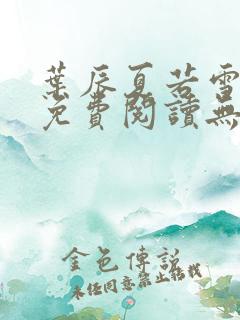 葉辰夏若雪
免費閱讀無
金色傳說
未經同意禁止轉載